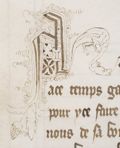 A
ace temps ga
pour yce faire
nous de sa bo